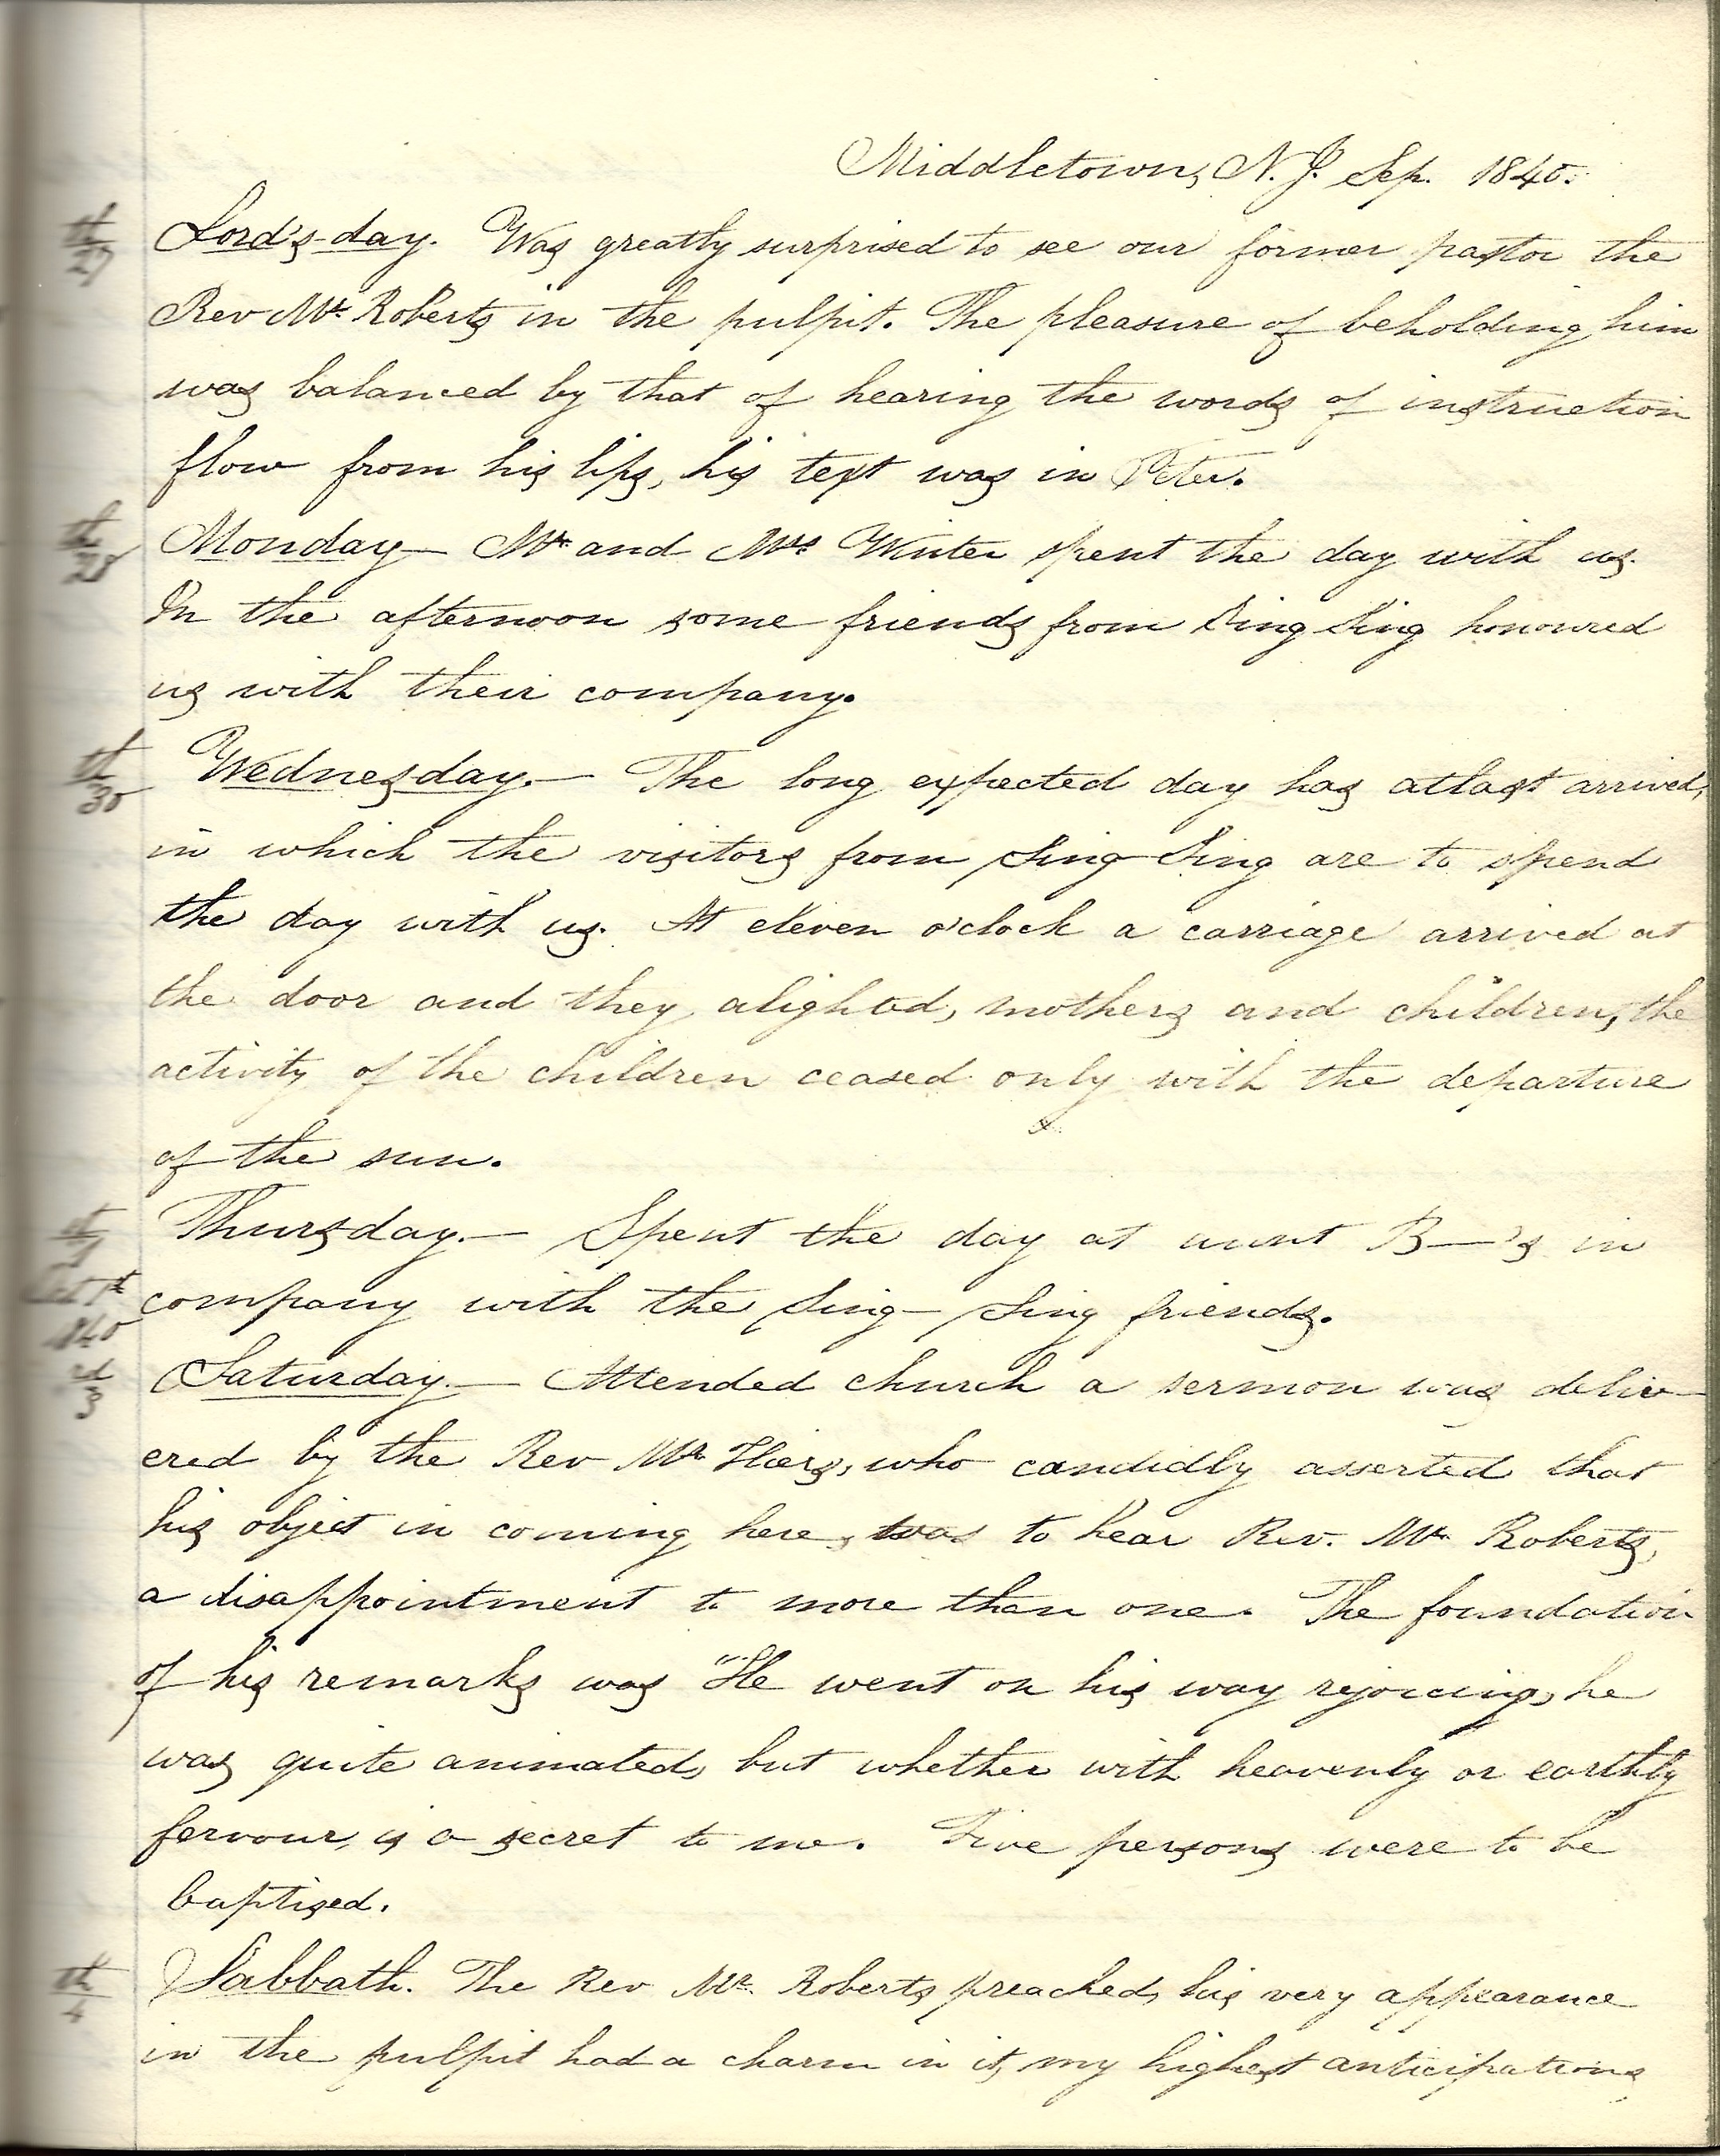 Middletown, N. J. Sep. 1840.
th
27 Lord's-day. Was greatly surprised to see our former pastor the
Rev Mr. Roberts in the pulpit. The pleasure of beholding him
was balanced by that of hearing the words of instruction
flow from his lips, his text was in Peter.
th
28 Monday— Mr and Mrs Winter spent the day with us.
In the afternoon some friends from Sing Sing honoured
us with their company.
th
30 Wednesday.— The long expected day has atlast arrived,
in which the visitors from Sing-Sing are to spend
the day with us. At eleven o'clock a carriage arrived at
the door and they alighted, mothers and children, the
activity of the children ceased only with the departure
of the sun.
Thursday.— Spent the day at aunt B—'s in
company with the Sing-Sing friends.
d
3 Saturday.— Attended church a sermon was deliv-
ered by the Rev Mr who candidly asserted that
his object in coming here, was to hear Rev. Mr. Roberts,
a disappointment to more than one. The foundation
of his remarks was "He went on his way rejoicing, he
was quite animated, but whether with heavenly or earthly
fervour, is a secret to me. Five persons were to be
baptised.
th
4 Sabbath. The Rev Mr. Roberts preached, his very appearance
in the pulpit had a charm in it, my highest anticipations